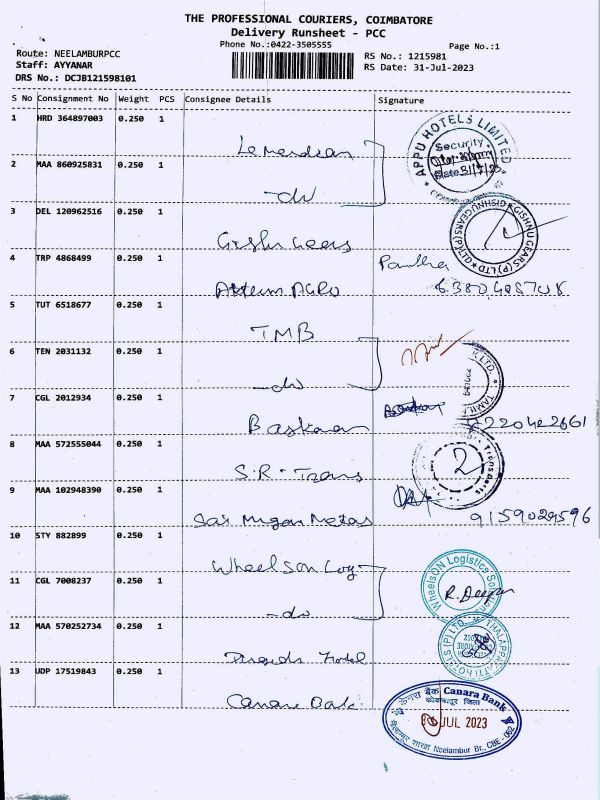 THE PROFESSIONAL COURIERS, COIMBATORE
Delivery Runsheet - PCC
Phone No.:0422-3505555
Page No.:1
Route: NEELAMBURPCC
RS No.: 1215981
Staff: AYYANAR
RS Date: 31-Jul-2023
DRS No.: DCJB121598101
S No Consignment No Weight PCS Consignee Details Signature
1 HRD 364897003 0.250 1
APPU HOTELS LIMITED
Security
Date 31/7/23
2 MAA 860925831 0.250 1
-do
3 DEL 120962516 0.250 1
GISHNU GEARS (P) LTD
4 TRP 4868499 0.250 1
5 TUT 6518677 0.250 1
TMB
6 TEN 2031132 0.250 1
-do
7 CGL 2012934 0.250 1
Baskaran
8 MAA 572555044 0.250 1
S.R. Trans
2
9 MAA 102948390 0.250 1
Sai Murgan Metas
9159029596
10 STY 882899 0.250 1
Wheelson Log
WheelsON Logistics
11 CGL 7008237 0.250 1
R. Deepa
-do
12 MAA 570252734 0.250 1
THALAPPAKATTI HOTELS (P) LTD.
Hotel
13 UDP 17519843 0.250 1
Canara Bank
केनरा बैंक Canara Bank
JUL 2023
Neelambur Br., CBE - 062